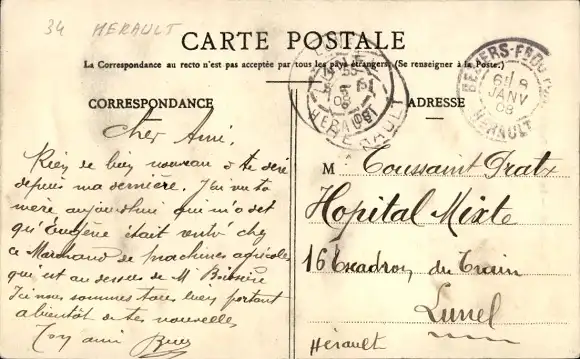 34 HERAULT
CARTE POSTALE
La Correspondance au recto n'est pas acceptée par tous les pays étrangers. (Se renseigner à la Poste.)
CORRESPONDANCE
ADRESSE
BEZIERS-FBOU
6 8
JANV
08
HERAULT
HERAULT
Cher Ami,
Rien de bien nouveau à te
depuis ma dernière. J'ai vu ta
mère aujourd'hui qui m'a dit
qu'Eugène était rentré chez
ce Marchand de machines agricoles
qui est au dessus de Mr Boissière
Ici nous sommes tous bien portant
a bientôt de tes nouvelles
Ton ami
M Toussaint Pratx
Hopital Mixte
16 Escadron du Train
Lunel
Hérault